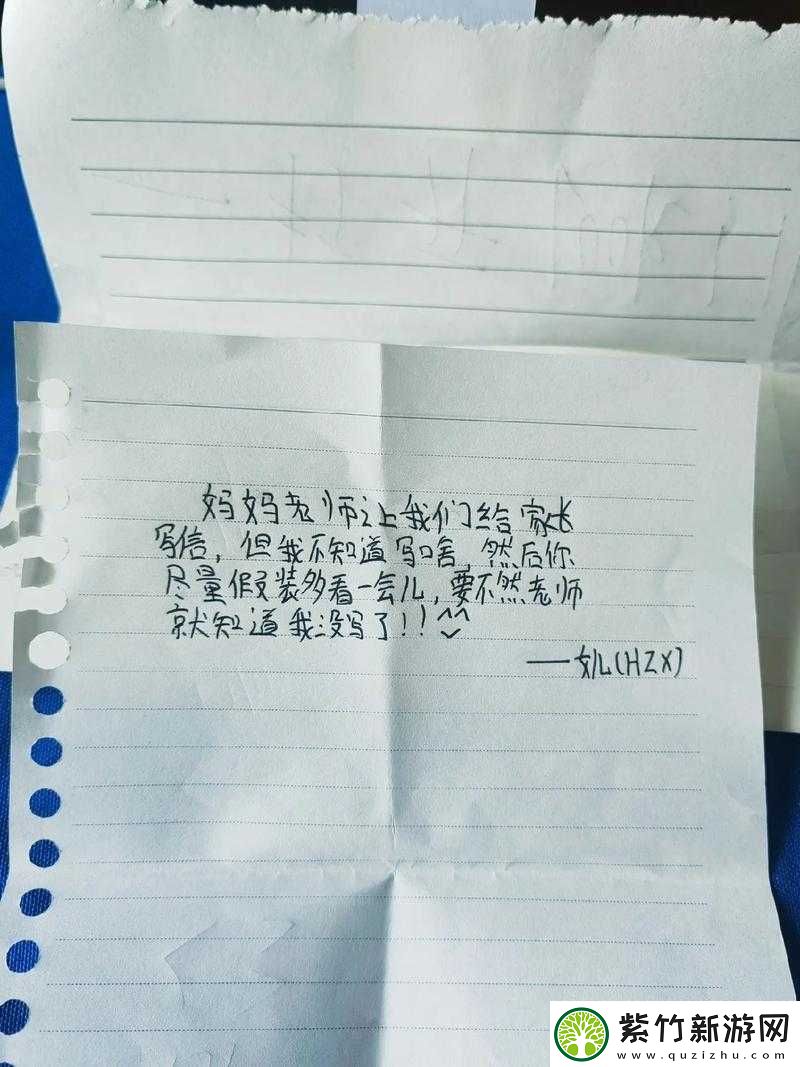 妈妈老师让我们给家长
写信，但我不知道写啥，然后你
尽量假装多看一会儿，要不然老师
就知道我没写了!!^^
——(HZX)
紫竹新游网
www.quzizhu.com